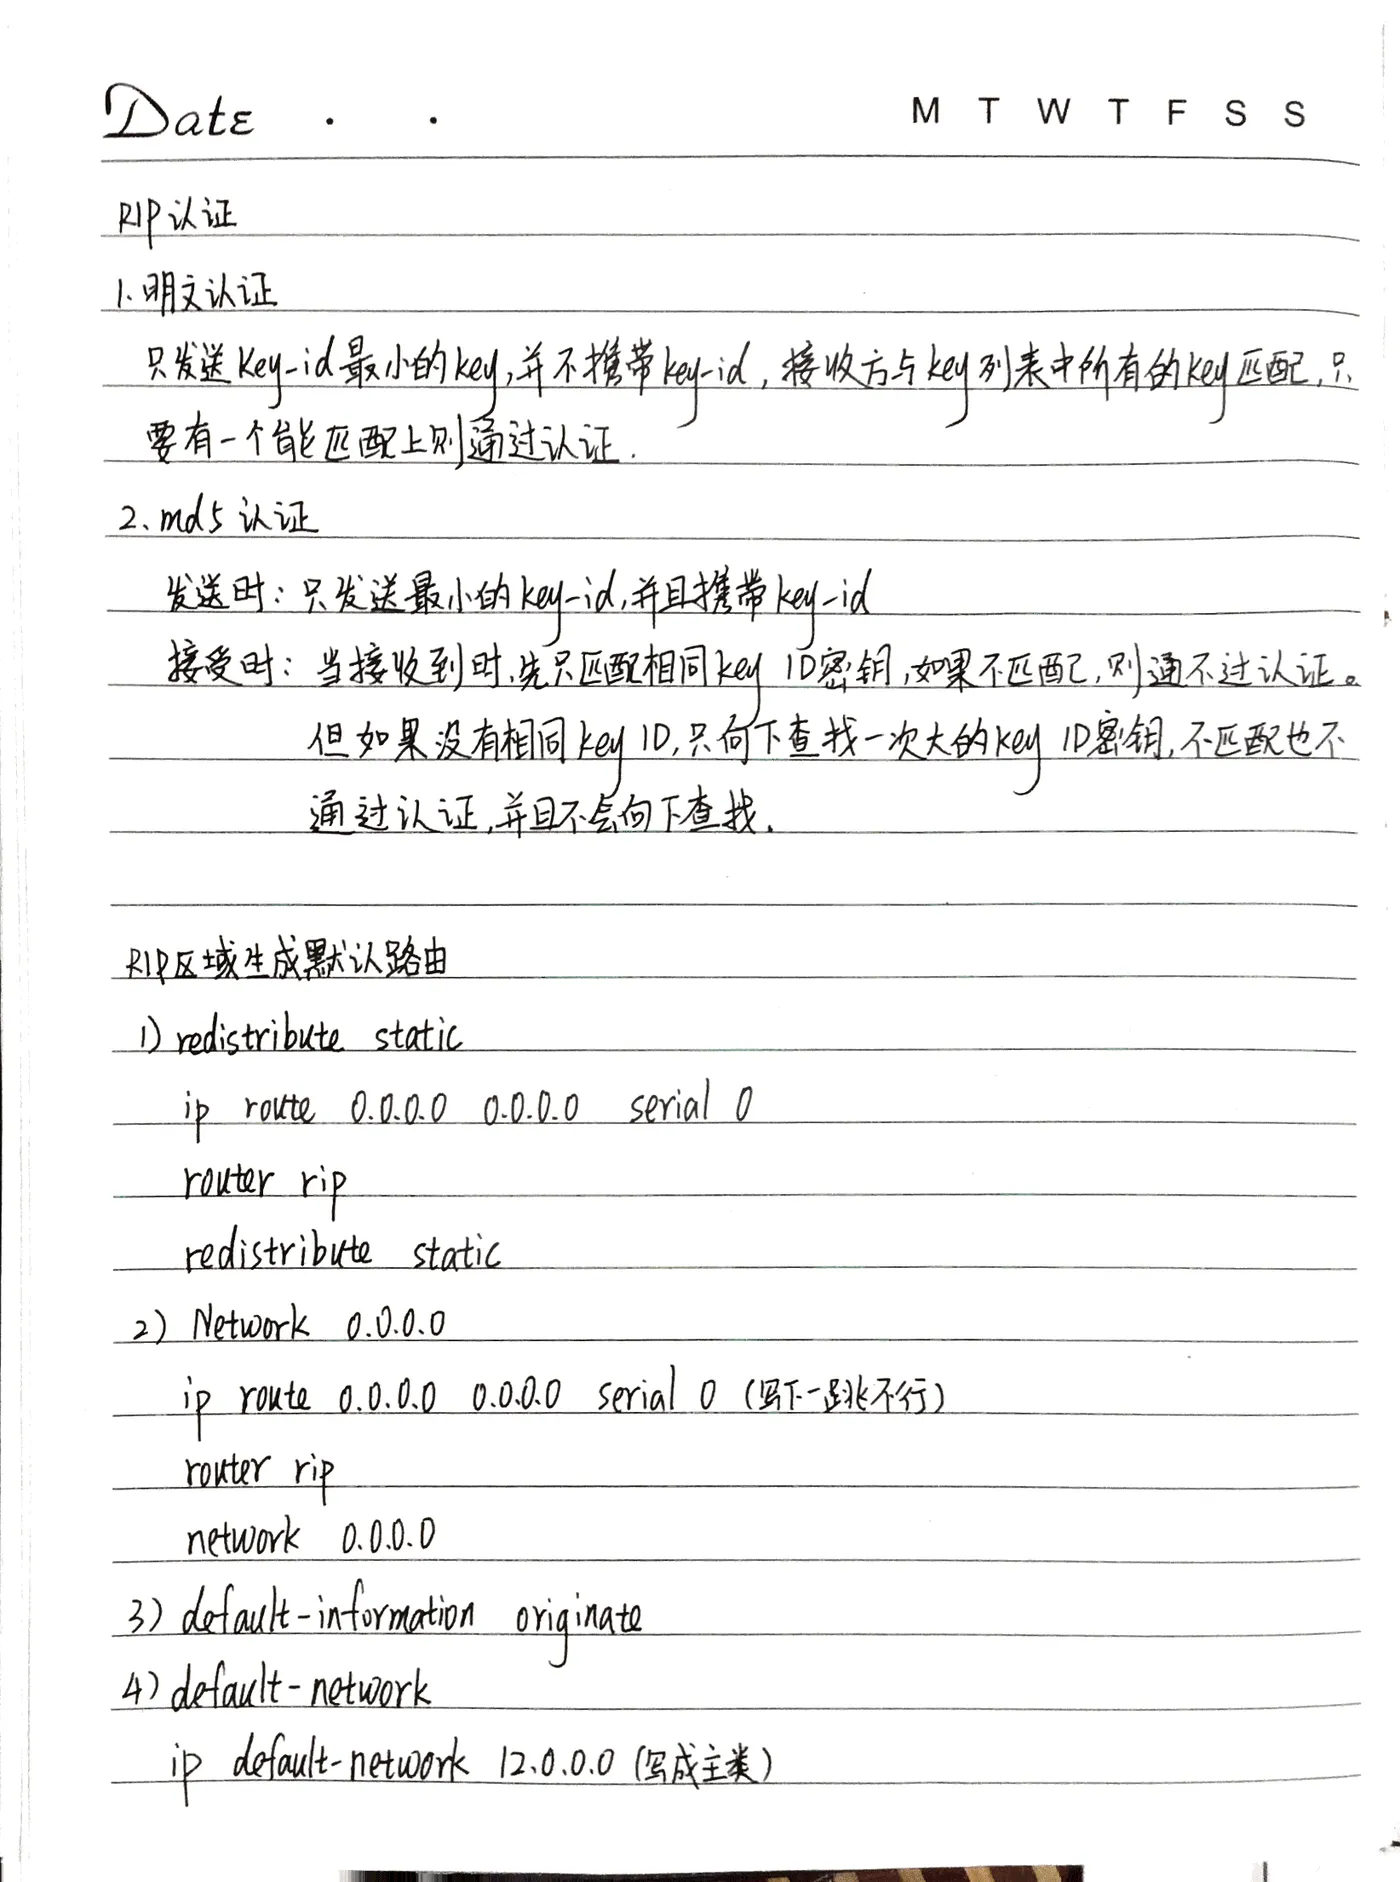 Date . .
M T W T F S S
RIP认证
1.明文认证
只发送key-id最小的key,并不携带key-id,接收方与key列表中所有的key匹配,只
要有一个能匹配上则通过认证.
2.md5认证
发送时:只发送最小的key-id,并且携带key-id
接受时:当接收到时,先只匹配相同key ID密钥,如果不匹配,则通不过认证。
但如果没有相同key ID,只向下查找一次大的key ID密钥,不匹配也不
通过认证,并且不会向下查找.
RIP区域生成默认路由
1) redistribute static
ip route 0.0.0.0 0.0.0.0 serial 0
router rip
redistribute static
2) Network 0.0.0.0
ip route 0.0.0.0 0.0.0.0 serial 0 (写下一跳不行)
router rip
network 0.0.0.0
3) default-information originate
4) default-network
ip default-network 12.0.0.0 (写成主类)